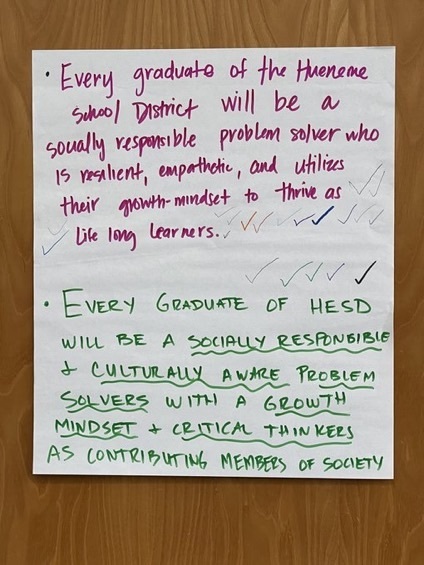 • Every graduate of the Hueneme
School District will be a
socially responsible problem solver who
is resilient, empathetic, and utilizes
their growth-mindset to thrive as
life long learners.
• EVERY GRADUATE OF HESD
WILL BE A SOCIALLY RESPONSIBLE
+ CULTURALLY AWARE PROBLEM
SOLVERS WITH A GROWTH
MINDSET + CRITICAL THINKERS
AS CONTRIBUTING MEMBERS OF SOCIETY